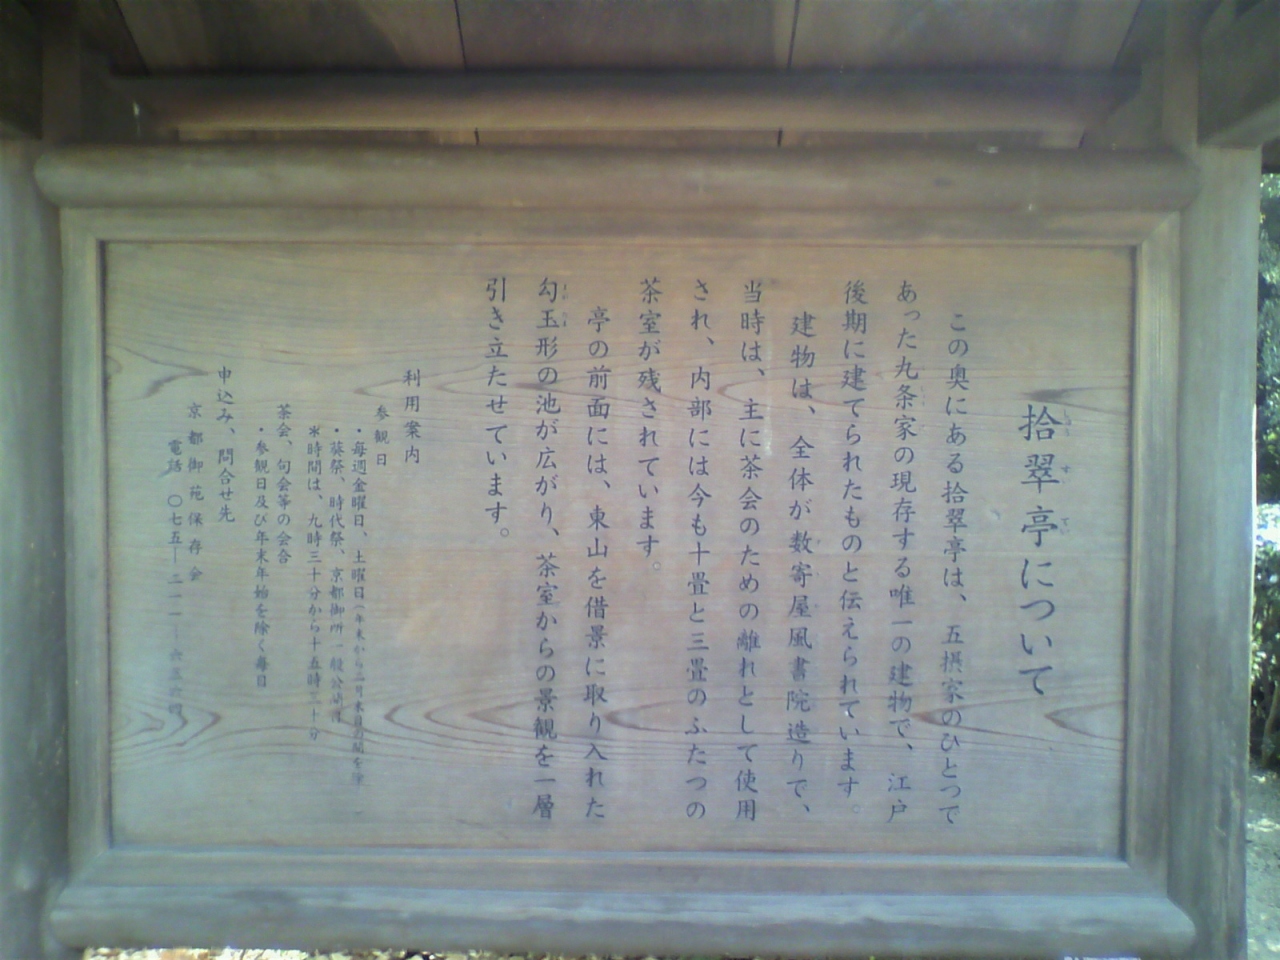 拾翠亭について
この奥にある拾翠亭は、五摂家のひとつで
あった九条家の現存する唯一の建物で、江戸
後期に建てられたものと伝えられています。
建物は、全体が数寄屋風書院造りで、
当時は、主に茶会のための離れとして使用
され、内部には今も十畳と三畳のふたつの
茶室が残されています。
亭の前面には、東山を借景に取り入れた
勾玉形の池が広がり、茶室からの景観を一層
引き立たせています。
利用案内
参観日
・毎週金曜日、土曜日(年末から二月末日の間を除
・葵祭、時代祭、京都御所一般公開日
＊時間は、九時三十分から十五時三十分
茶会、句会等の会合
・参観日及び年末年始を除く毎日
申込み、問合せ先
京都御苑保存会
電話 〇七五―二一一―六三六四